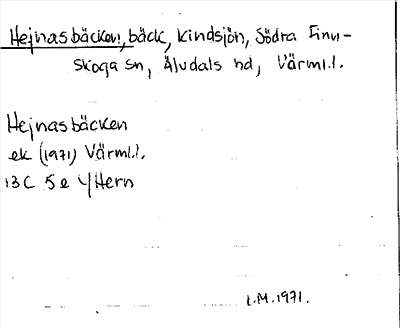 Hejnasbäcken, bäck, Kindsjön, Södra Finn-
skoga sn, Älvdals hd, Värml.
Hejnasbäcken
ek (1971) Värml.
13C 5e
L.M. 1971.